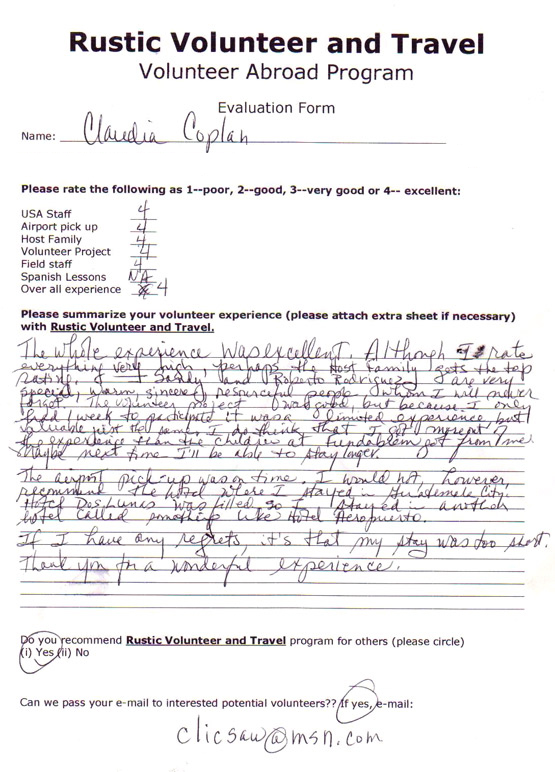 Rustic Volunteer and Travel
Volunteer Abroad Program
Evaluation Form
Name: Claudia Coplan
Please rate the following as 1--poor, 2--good, 3--very good or 4-- excellent:
USA Staff 4
Airport pick up 4
Host Family 4
Volunteer Project 4
Field staff 4
Spanish Lessons NA
Over all experience 4
Please summarize your volunteer experience (please attach extra sheet if necessary)
with Rustic Volunteer and Travel.
The whole experience was excellent. Although I rate
everything very high, perhaps the Host Family gets the top
rating. Sandy and Roberto Rodriguez are very
special, warm, sincere, respectful people whom I will never
forget. The volunteer project was good but because I only
had 1 week to participate it was a limited experience but
valuable just the same. I do think that I got more out of
the experience than the children at Fundabiem got from me.
Maybe next time I'll be able to stay longer.
The airport pick-up was on time. I would not, however,
recommend the hotel where I stayed in Guatemala City.
Hotel Dos Lunas was filled so I stayed in another
hotel called something like Hotel Aeropuerto.
If I have any regrets, it's that my stay was too short.
Thank you for a wonderful experience.
Do you recommend Rustic Volunteer and Travel program for others (please circle)
(i) Yes (ii) No
Can we pass your e-mail to interested potential volunteers?? If yes, e-mail:
clicsaw@msn.com